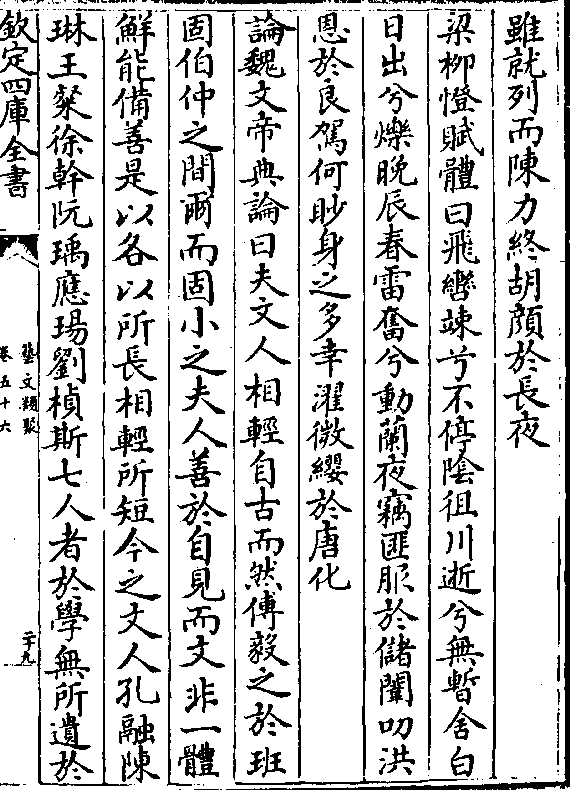 雖就列而陳力終胡顔於長夜
梁柳憕賦體曰飛轡竦兮不停隂徂川逝兮無暫舍白
日出兮爍晩辰春雷奮兮動蘭夜竊匪服於儲闈叨洪
恩於良駕何眇身之多幸濯微纓於唐化
論魏文帝典論曰夫文人相輕自古而然傅毅之於班
固伯仲之間爾而固小之夫人善於自見而文非一體
鮮能備善是以各以所長相輕所短今之文人孔融陳
琳王粲徐幹阮瑀應瑒劉楨斯七人者於學無所遺於
欽定四庫全書
藝文類聚
卷五十六
二十九